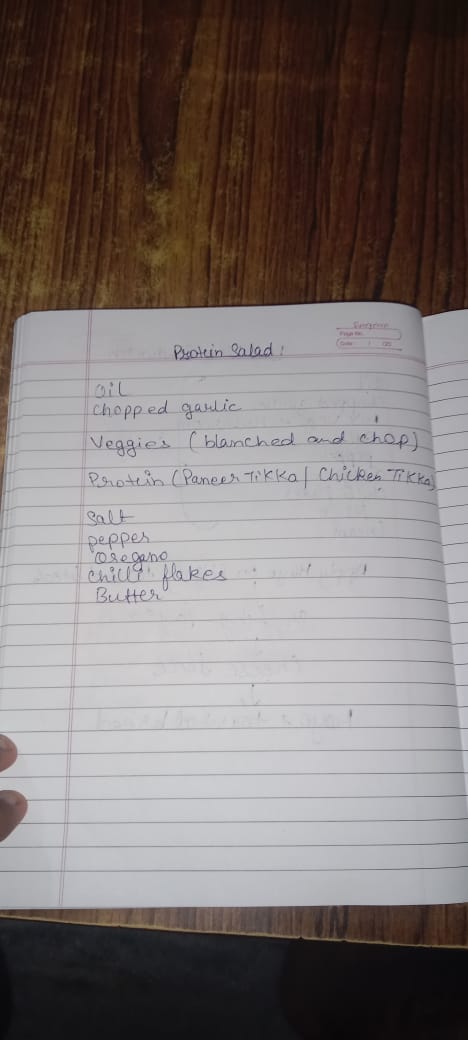 Evergreen
Page No.
Date: / /20
Protein Salad :
oil
chopped garlic
Veggies (blanched and chop)
Protein (Paneer Tikka / Chicken Tikka)
Salt
pepper
Oregano
chilli flakes
Butter